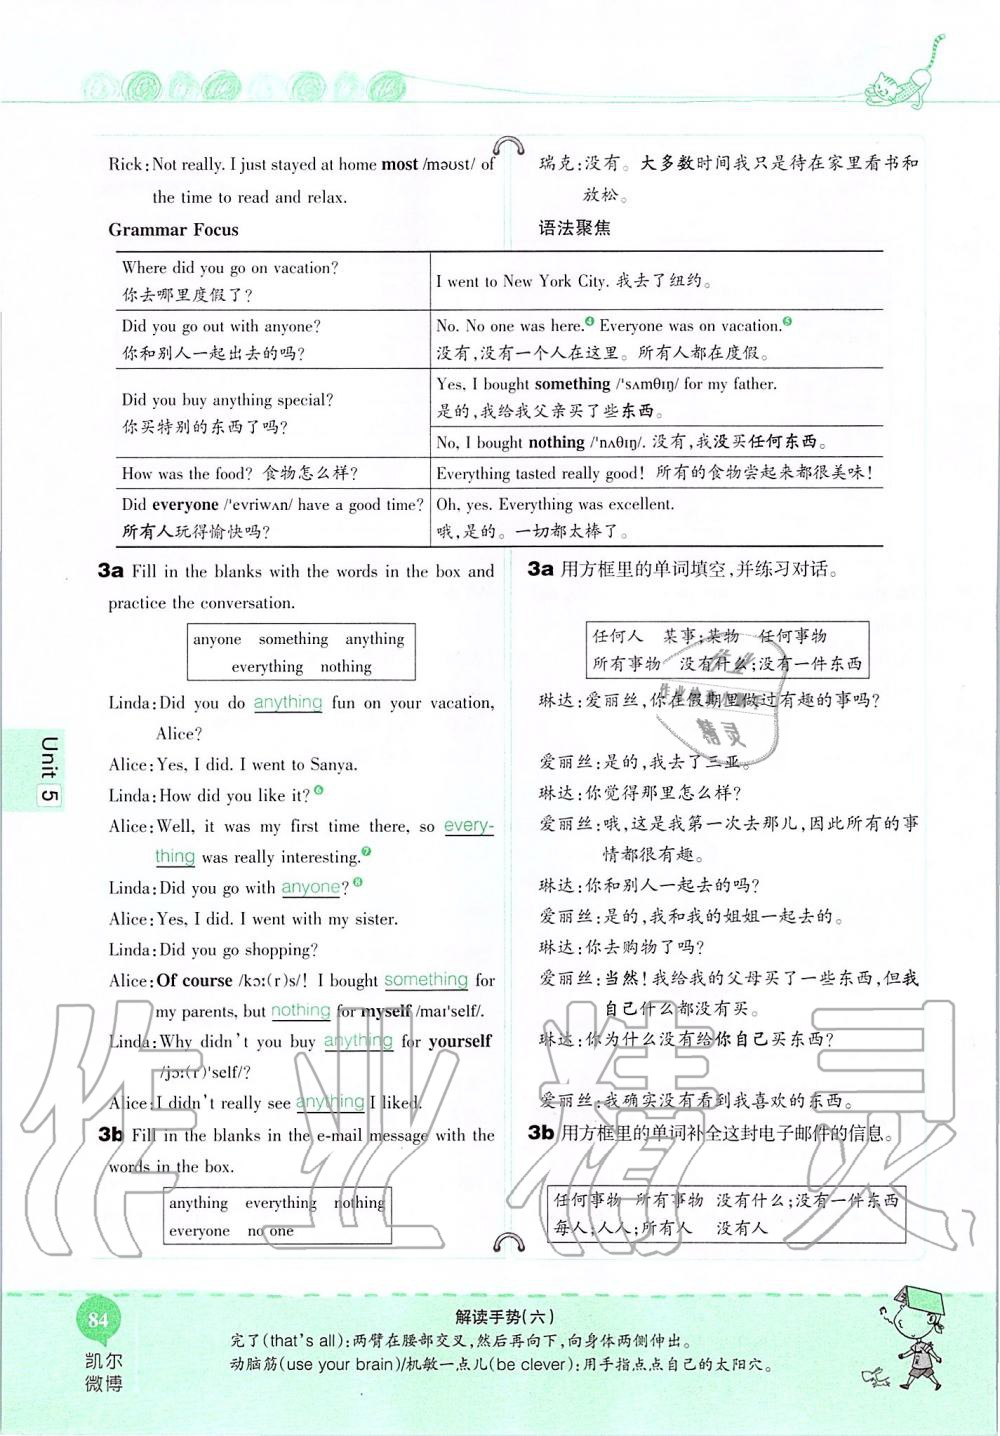 Rick:Not really. I just stayed at home most /məʊst/ of
the time to read and relax.
瑞克:没有。大多数时间我只是待在家里看书和
放松。
Grammar Focus
语法聚焦
Where did you go on vacation?
你去哪里度假了?
I went to New York City. 我去了纽约。
Did you go out with anyone?
你和别人一起出去的吗?
No. No one was here.❹ Everyone was on vacation.❺
没有,没有一个人在这里。所有人都在度假。
Did you buy anything special?
你买特别的东西了吗?
Yes, I bought something /'sʌmθɪŋ/ for my father.
是的,我给我父亲买了些东西。
No, I bought nothing /'nʌθɪŋ/. 没有,我没买任何东西。
How was the food? 食物怎么样?
Everything tasted really good! 所有的食物尝起来都很美味!
Did everyone /'evriwʌn/ have a good time?
所有人玩得愉快吗?
Oh, yes. Everything was excellent.
哦,是的。一切都太棒了。
3a Fill in the blanks with the words in the box and
practice the conversation.
anyone something anything
everything nothing
Linda:Did you do anything fun on your vacation,
Alice?
Alice:Yes, I did. I went to Sanya.
Linda:How did you like it?❻
Alice:Well, it was my first time there, so every-
thing was really interesting.❼
Linda:Did you go with anyone?❽
Alice:Yes, I did. I went with my sister.
Linda:Did you go shopping?
Alice:Of course /kɔː(r)s/! I bought something for
my parents, but nothing for myself /maɪ'self/.
Linda:Why didn't you buy anything for yourself
/jɔː(r)'self/?
Alice:I didn't really see anything I liked.
3b Fill in the blanks in the e-mail message with the
words in the box.
anything everything nothing
everyone no one
3a 用方框里的单词填空,并练习对话。
任何人 某事;某物 任何事物
所有事物 没有什么;没有一件东西
琳达:爱丽丝,你在假期里做过有趣的事吗?
爱丽丝:是的,我去了三亚。
琳达:你觉得那里怎么样?
爱丽丝:哦,这是我第一次去那儿,因此所有的事
情都很有趣。
琳达:你和别人一起去的吗?
爱丽丝:是的,我和我的姐姐一起去的。
琳达:你去购物了吗?
爱丽丝:当然!我给我的父母买了一些东西,但我
自己什么都没有买。
琳达:你为什么没有给你自己买东西?
爱丽丝:我确实没有看到我喜欢的东西。
3b 用方框里的单词补全这封电子邮件的信息。
任何事物 所有事物 没有什么;没有一件东西
每人;人人;所有人 没有人
Unit 5
作业精灵
作业
精灵
84
凯尔
微博
解读手势(六)
完了(that's all):两臂在腰部交叉,然后再向下,向身体两侧伸出。
动脑筋(use your brain)/机敏一点儿(be clever):用手指点点自己的太阳穴。